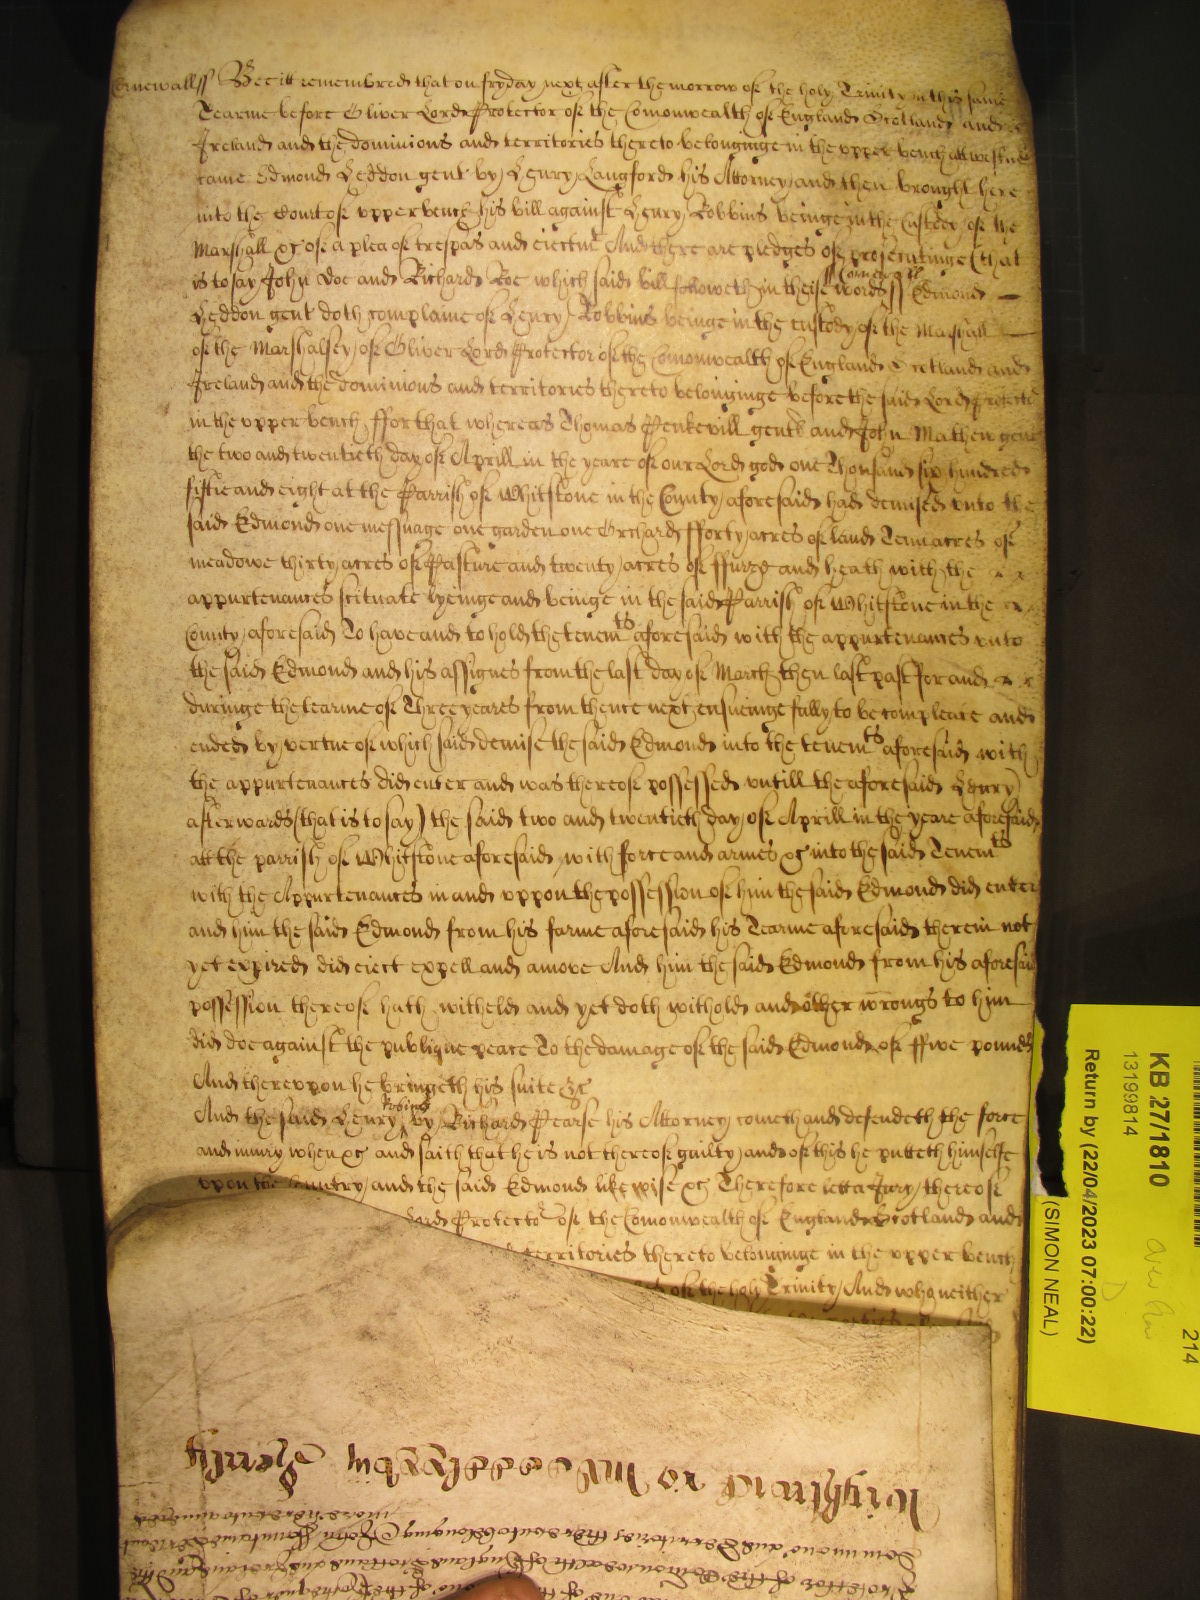 Cornewall ss Bee itt remembred that on fryday next after the morrow of the holy Trinity in this same
Tearme before Oliver Lord Protector of the Comonwealth of England Scotland and
Ireland and the dominions and territories thereto belonginge in the upper bench att Westm
came Edmond Heddon gent by Henry Langford his Attorney and then brought here
into the Court of upper bench his bill against Henry Robbins beinge in the Custody of the
Marshall &c of a plea of trespas and eiectmt And there are pledges of prosecutinge (that
is to say John Doe and Richard Roe which said bill followeth in theise words ss Cornewall ss Edmond
Heddon gent doth complaine of Henry Robbins beinge in the custody of the Marshall
of the Marshalsey of Oliver Lord Protector of the Comonwealth of England Scotland and
Ireland and the dominions and territories thereto belonginge before the said Lord Protector
in the upper bench ffor that whereas Thomas Penkevill gent and John Mathew gent
the two and twentieth day of Aprill in the yeare of our Lord god one Thousand six hundred
fiftie and eight at the Parrish of Whitstone in the County aforesaid had demised unto the
said Edmond one messuage one garden one Orchard fforty acres of land Tenn acres of
meadowe thirty acres of Pasture and twenty acres of ffurze and heath with the
appurtenances scituate lyeinge and beinge in the said Parrish of Whitstone in the
County aforesaid To have and to hold the tenemts aforesaid with the appurtenances unto
the said Edmond and his assignes from the last day of March then last past for and
duringe the tearme of Three yeares from thence next ensueinge fully to be compleate and
ended by vertue of which said demise the said Edmond into the tenemts aforesaid with
the appurtenances did enter and was thereof possessed untill the aforesaid Henry
afterwards (that is to say) the said two and twentieth day of Aprill in the yeare aforesaid
att the parrish of Whitstone aforesaid with force and armes &c into the said Tenemts
with the Appurtenances in and uppon the possession of him the said Edmond did enter
and him the said Edmond from his farme aforesaid his Tearme aforesaid therein not
yet expired did eiect expell and amove And him the said Edmond from his aforesaid
possession thereof hath witheld and yet doth withold and other wrongs to him
did doe against the publique peace To the damage of the said Edmond of ffive pounds
And thereupon he bringeth his suite &c
And the said Henry Robins by Richard Pearse his Attorney cometh and defendeth the force
and iniury when &c and saith that he is not thereof guilty and of this he putteth himselfe
upon the Countrey and the said Edmond likewise &c Therefore lett a Jury thereof
Lord Protector of the Comonwealth of England Scotland and
territories thereto belonginge in the upper bench
of the holy Trinity And who neither
KB 27/1810
13199814
Return by (22/04/2023 07:00:22)
(SIMON NEAL)
214